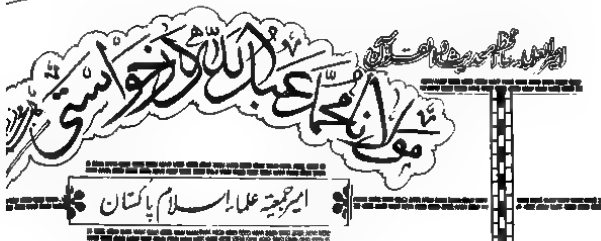 حافظ الحدیث والقرآن
مولانا محمد عبداللہ درخواستی
امیر جمعیۃ علماء اسلام پاکستان